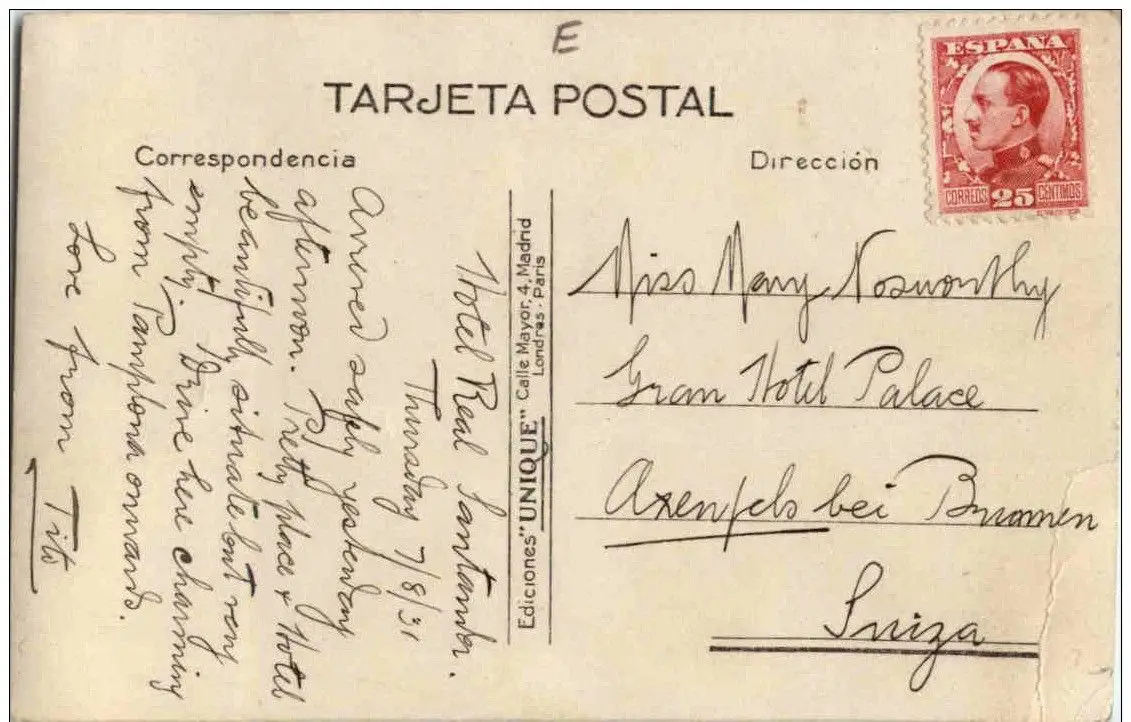 E
TARJETA POSTAL
Correspondencia
Hotel Real Santander.
Thursday 7/8/31
Arrived safely yesterday
afternoon. Pretty place & Hotel
beautifully situate but very
empty. Drive here charming
from Pamplona onwards.
Love from Tito
Ediciones "UNIQUE" Calle Mayor, 4, Madrid
Londres - Paris
Dirección
ESPAÑA
CORREOS 25 CENTIMOS
Miss Mary Nosworthy
Gran Hotel Palace
Axenfels bei Brunnen
Suiza